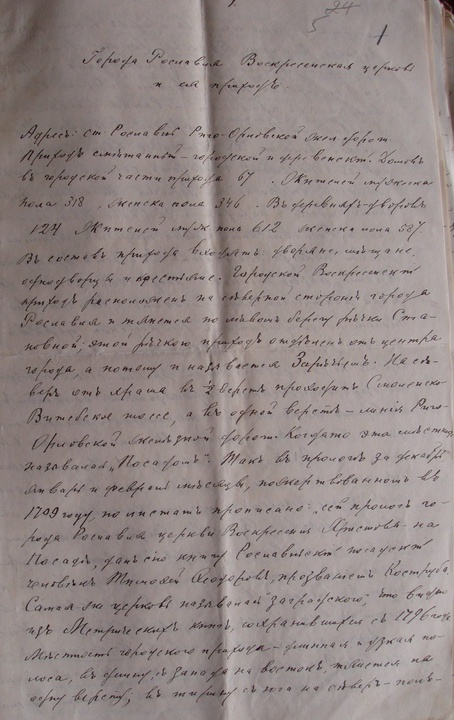 24
1
Города Рославля Воскресенская церковь
и ея приходъ.
Адресъ: ст. Рославль Риго-Орловской жел. дорог.
Приходъ смѣшанный – городской и деревенскій. Домовъ
въ городской части прихода 67. Жителей мужска
пола 318, женска пола 346. Въ деревняхъ дворовъ
124 жителей муж. пола 612 женска пола 587.
Въ составъ прихода входятъ: дворяне, мѣщане,
однодворцы и крестьяне. Городской Воскресенскій
приходъ расположенъ на сѣверной сторонѣ города
Рославля и тянется по лѣвому берегу рѣчки Ста-
новной: этой рѣчкою приходъ отдѣленъ отъ центра
города, а потому и называется Зарѣчьемъ. На сѣ-
верѣ отъ храма въ ½ верстѣ проходитъ Смоленско-
Витебское шоссе, а въ одной верстѣ – линія Риго-
Орловской желѣзной дорог. Когда то эта мѣстность
называлась „Посадомъ". Такъ въ прологѣ за декабрь
январь и февраль мѣсяцы, пожертвованномъ въ
1709 году, по листамъ прописано: „сей прологъ го-
рода Рославля церкви Воскресенія Христова на
Посадѣ, далъ сію книгу Рославльскій посадскій
человѣкъ Тимофей Ѳеодоровъ, прозваніемъ Коструба
Самая же церковь называлась „Заградскою", что видно
изъ Метрическихъ книгъ, сохранившихся съ 1796 года
Мѣстность городского прихода – длинная и узкая по-
лоса, въ длину, съ запада на востокъ, тянется на
одну версту; въ ширину съ юга на сѣверъ – полъ-